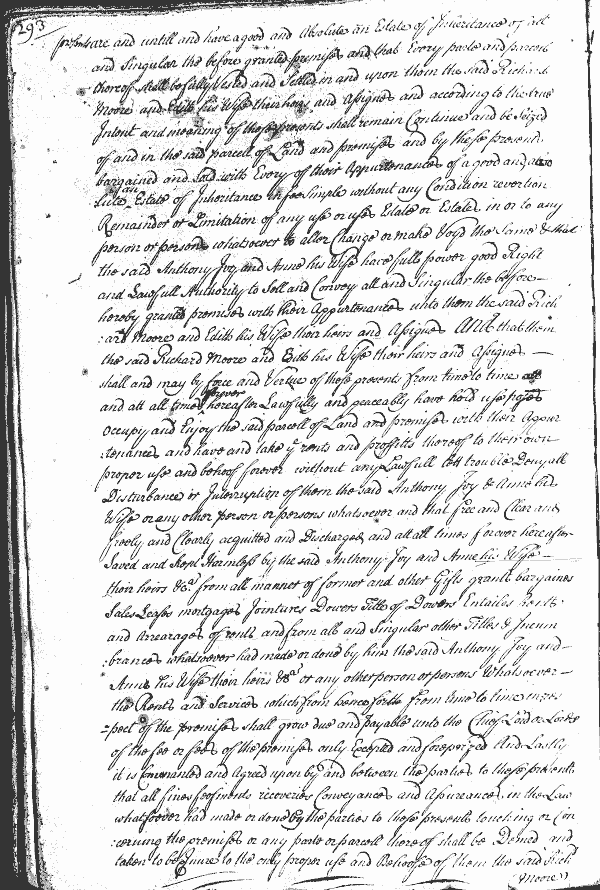 293
presents are and untill and have a good and Absolute an Estate of Inheritance of all
and Singular the before granted premises and that Every parte and parcell
thereof shall be fully Vested and Setled in and upon them the said Richard
Moore and Edith his Wife their heirs and Assignes and according to the true
Intent and meaning of these presents shall remain Continue and be Seized
of and in the said parcell of Land and premises and by these presents
bargained and Sold with Every of their Appurtenances of a good and abso
lute Estate of Inheritance in fee Simple without any Condition revertion
Remainder or Limitation of any use or uses Estate or Estates in or to any
person or persons whatsoever to alter Change or make Voyd the Same & that
the said Anthony Joy and Anne his Wife have full power good Right
and Lawfull Authority to Sell and Convey all and Singular the before
hereby granted premises with their Appurtenances unto them the said Rich
:ard Moore and Edith his Wife their heirs and Assignes AND that them
the said Richard Moore and Edith his Wife their heirs and Assignes —
shall and may by force and Vertue of these presents from time to time
and att all times forever hereafter Lawfully and peaceably have hold use posses
Occupy and Enjoy the said parcell of Land and premises with their Appur
tenances and have and take ye rents and proffitts thereof to their own
proper use and behoof forever without any Lawfull lett trouble Denyall
Disturbance or Interruption of them the said Anthony Joy & Anne his
Wife or any other person or persons whatsoever and that free and Clear and
freely and Clearly acquitted and Discharged and att all times forever hereafter
Saved and Kept Harmless by the said Anthony Joy and Anne his Wife —
their heirs &ca from all manner of former and other Gifts grants bargaines
Sales Leases mortgages Jointures Dowers Title of Dowers Entailes rents
and Arrearages of rents and from all and Singular other Titles & Incum
brances whatsoever had made or done by him the said Anthony Joy and
Anne his Wife their heirs &ca or any other person or persons Whatsoever —
the Rents and Services which from henceforth from time to time in res
=pect of the premises shall grow due and payable unto the Chief Lord or Lords
of the fee or fees of the premises only Excepted and foreprized And Lastly
it is Covenanted and Agreed upon by and between the parties to these presents
that all fines feofments recoveries Conveyances and Assureances in the Law
whatsoever had made or done by the parties to these presents touching or Con
:cerning the premises or any parte or parcell thereof shall be Demed and
taken to be Enure to the only proper use and Behoofe of them the said Rich
(Moore)